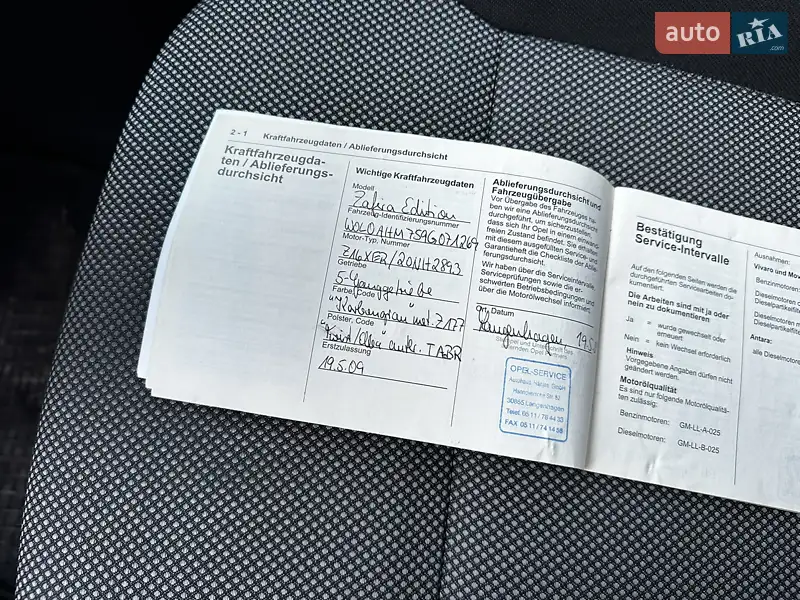 auto RIA.com
2 - 1 Kraftfahrzeugdaten / Ablieferungsdurchsicht
Kraftfahrzeugda-
ten / Ablieferungs-
durchsicht
Wichtige Kraftfahrzeugdaten
Modell
Zafira Edition
Fahrzeug-Identifizierungsnummer
W0L0AHM759G071269
Motor-Typ, Nummer
Z16XER/20NH2893
Getriebe
5-Ganggetriebe
Farbe, Code
"Karbongrau" met. Z177
Polster, Code
TABR
Erstzulassung
19.5.09
Ablieferungsdurchsicht und
Fahrzeugübergabe
Vor Übergabe des Fahrzeuges ha-
ben wir eine Ablieferungsdurchsicht
durchgeführt, um sicherzustellen,
dass sich Ihr Opel in einem einwand-
freien Zustand befindet. Sie erhalten
mit diesem ausgefüllten Service- und
Garantieheft die Checkliste der Ablie-
ferungsdurchsicht.
Wir haben über die Serviceintervalle,
Serviceprüfungen sowie die er-
schwerten Betriebsbedingungen und
über die Motorölwechsel informiert.
Ort, Datum
Langenhagen, 19.5.
Stempel und Unterschrift des
OPEL-SERVICE
30855 Langenhagen
Telef. 05 11 / 78 44 33
FAX 05 11 / 74 14 58
Bestätigung
Service-Intervalle
Auf den folgenden Seiten werden die
durchgeführten Servicearbeiten do-
kumentiert.
Die Arbeiten sind mit ja oder
nein zu dokumentieren
Ja = wurde gewechselt oder
erneuert
Nein = kein Wechsel erforderlich
Hinweis
Vorgegebene Angaben dürfen nicht
geändert werden.
Motorölqualität
Es sind nur folgende Motorölqualitä-
ten zulässig:
Benzinmotoren: GM-LL-A-025
Dieselmotoren: GM-LL-B-025
Ausnahmen:
Vivaro und Mov
Benzinmotoren
Dieselmotoren
Dieselpartikelfilt
Dieselmotoren
Dieselpartikelfilt
Antara:
alle Dieselmotore